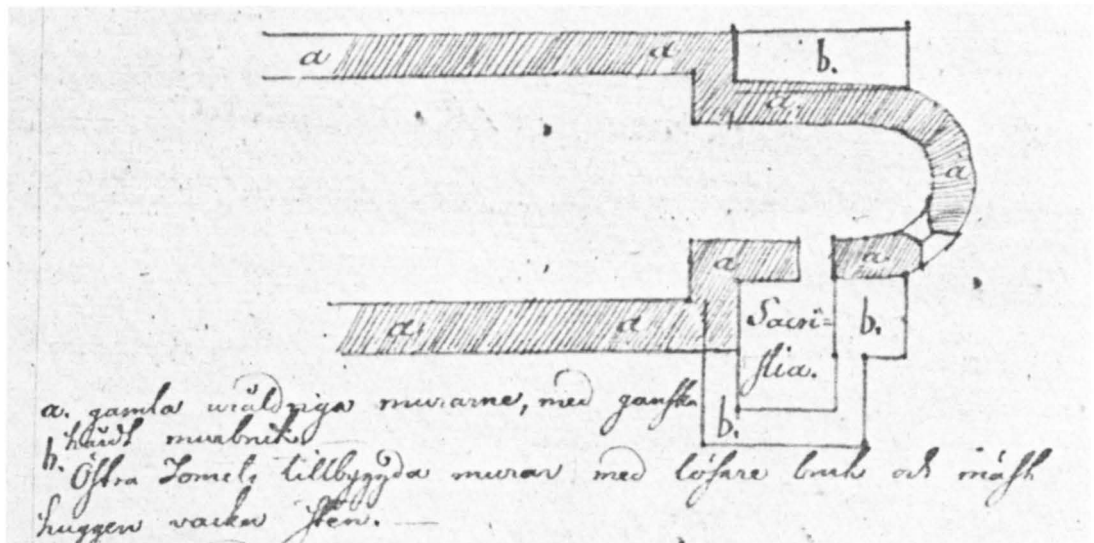 a a b.
a
a
a a
Sacri=
stia. b.
a a
b.
a. gamla uråldriga murarne, med ganska
hårdt murbruk.
b. Östra Tornets tillbyggda murar med lösare bruk och mäst
huggen vacker sten.